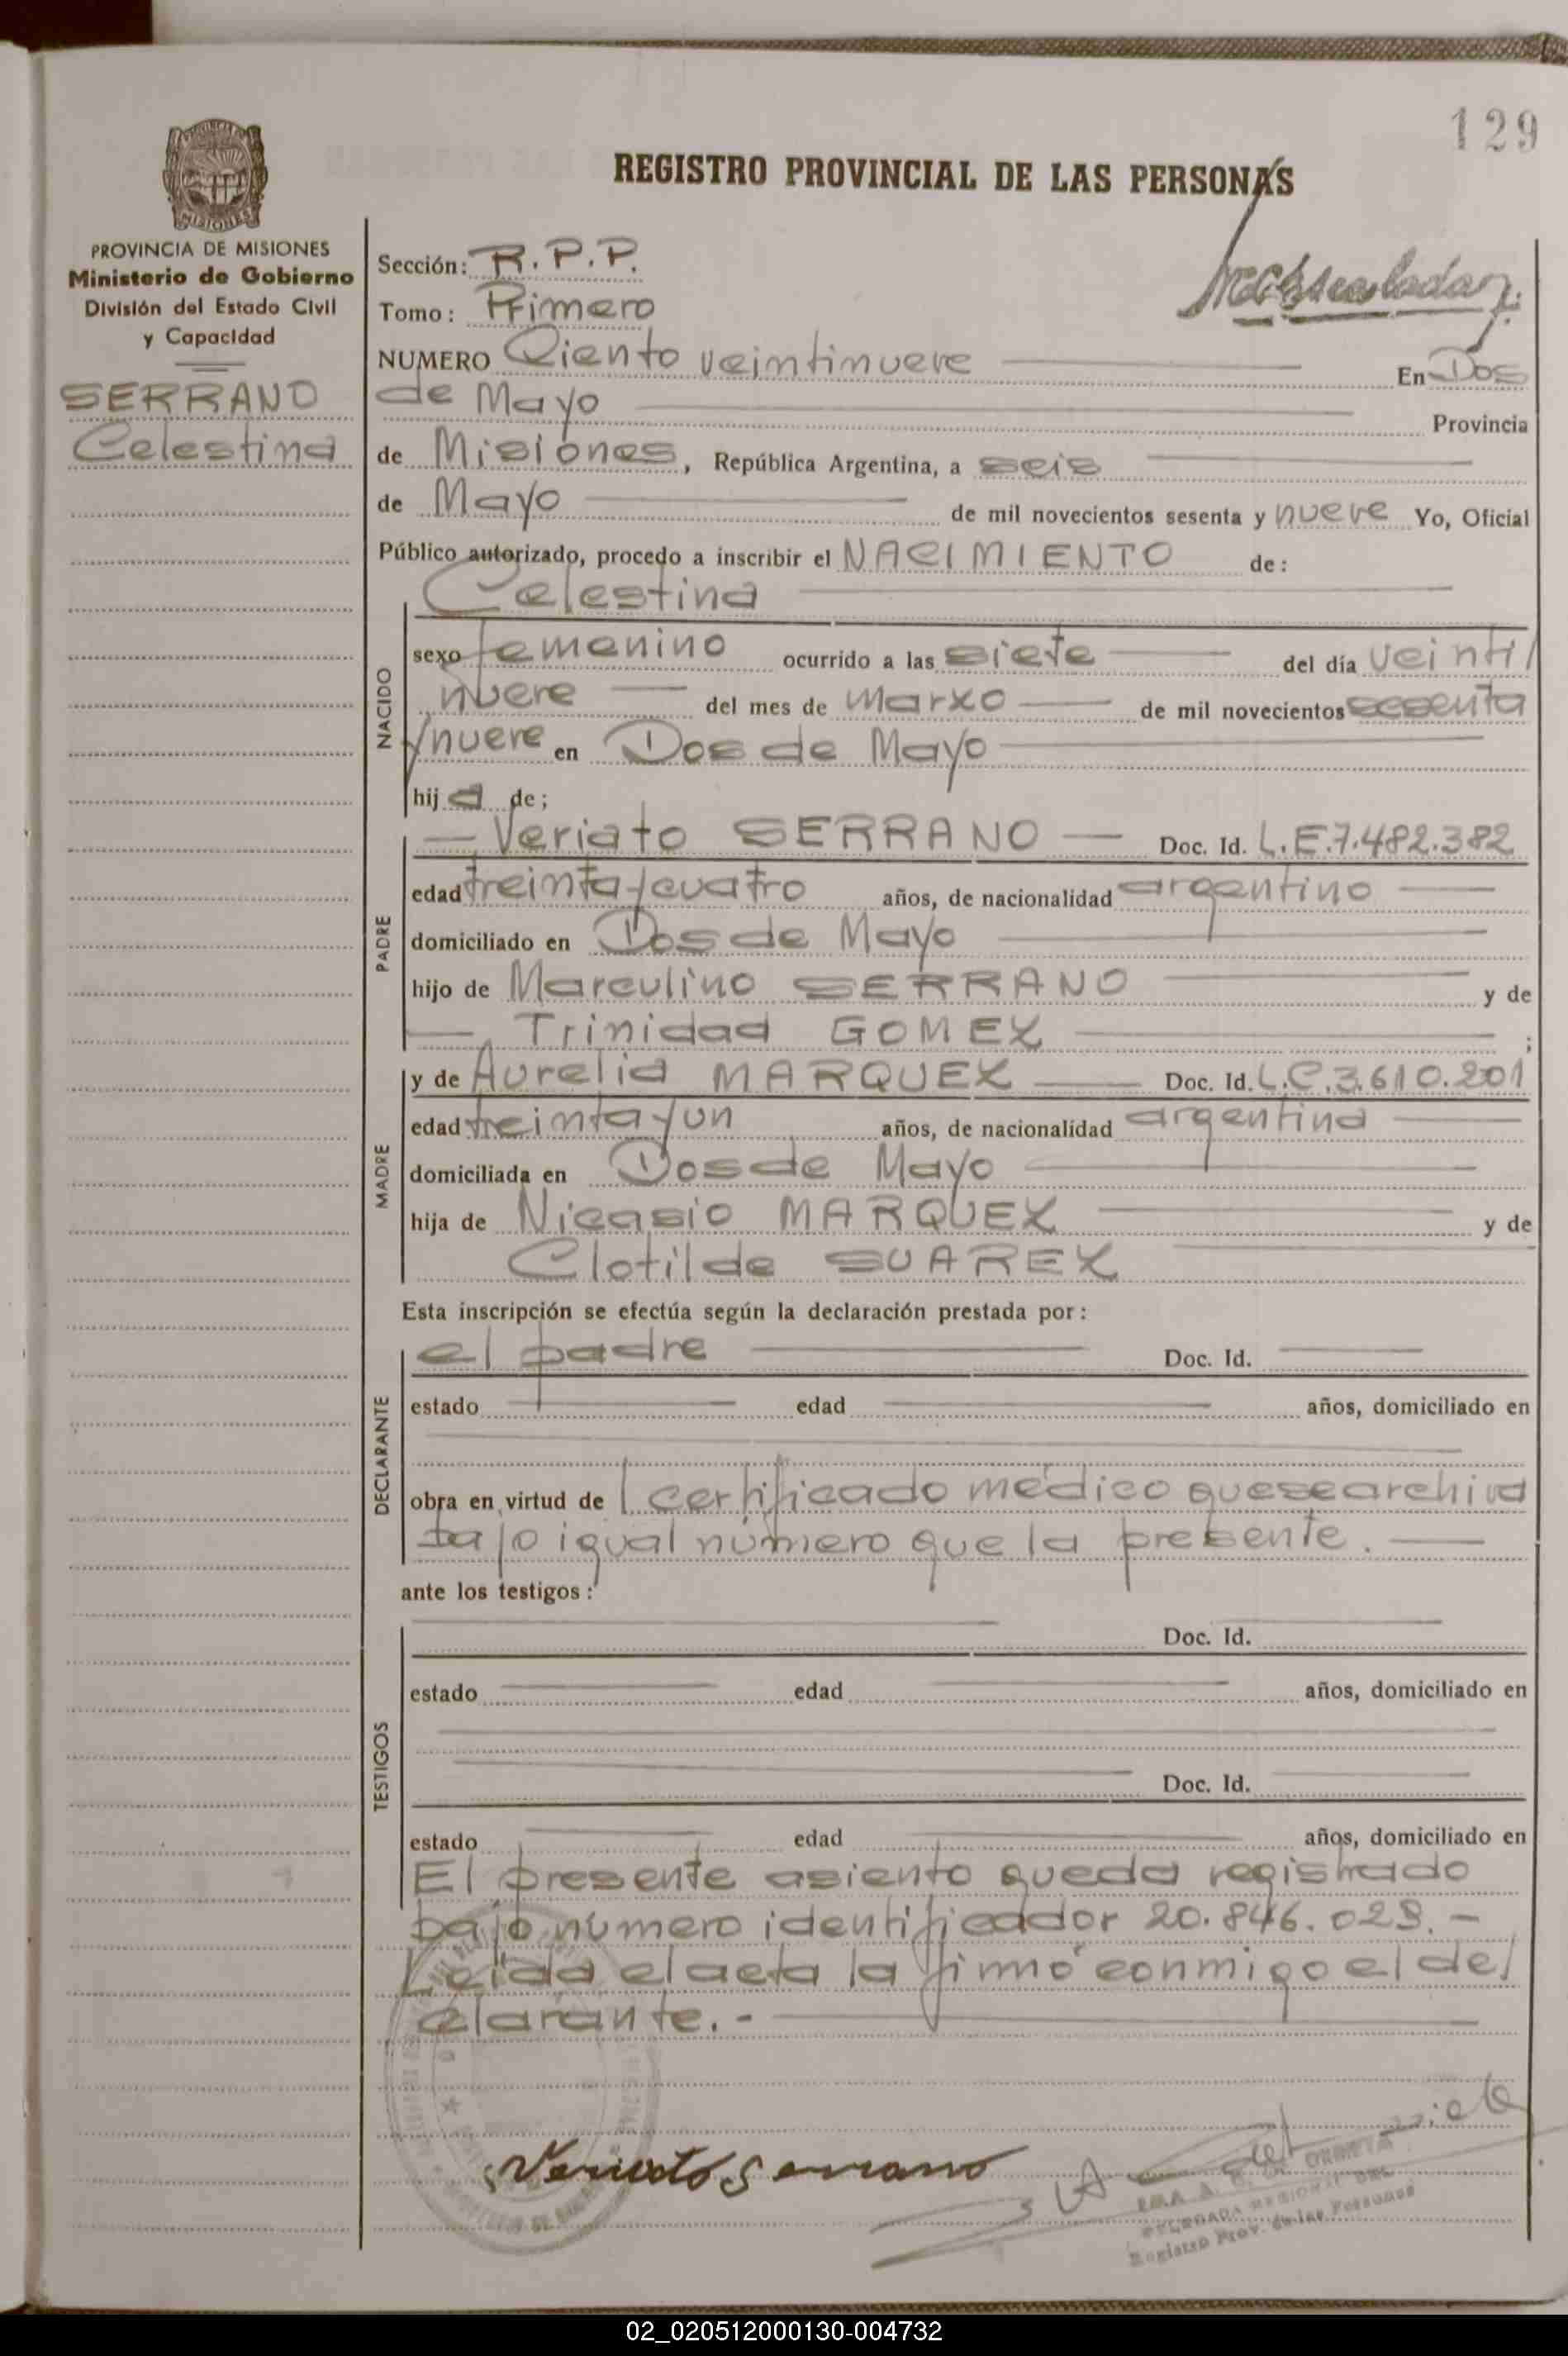 129
REGISTRO PROVINCIAL DE LAS PERSONAS
PROVINCIA DE MISIONES
Ministerio de Gobierno
División del Estado Civil
y Capacidad
SERRANO
Celestina
Sección: R.P.P.
Tomo: Primero
NUMERO Ciento veintinueve En Dos
de Mayo Provincia
de Misiones, República Argentina, a seis
de Mayo de mil novecientos sesenta y nueve Yo, Oficial
Público autorizado, procedo a inscribir el NACIMIENTO de:
Celestina
NACIDO
sexo femenino ocurrido a las siete del día veinti/
nueve del mes de marzo de mil novecientos sesenta
y nueve en Dos de Mayo
hija de;
PADRE
Veriato SERRANO Doc. Id. L.E.7.482.382
edad treinta y cuatro años, de nacionalidad argentino
domiciliado en Dos de Mayo
hijo de Marculino SERRANO y de
Trinidad GOMEZ ;
MADRE
y de Aurelia MARQUEZ Doc. Id. L.C.3.610.201
edad treinta y un años, de nacionalidad argentina
domiciliada en Dos de Mayo
hija de Nicasio MARQUEZ y de
Clotilde SUAREZ
Esta inscripción se efectúa según la declaración prestada por:
DECLARANTE
el padre Doc. Id.
estado edad años, domiciliado en
obra en virtud de l certificado médico que se archiva
bajo igual número que la presente.
ante los testigos:
TESTIGOS
Doc. Id.
estado edad años, domiciliado en
Doc. Id.
estado edad años, domiciliado en
El presente asiento queda registrado
bajo número identificador 20.846.029.-
Leída el acta la firmó conmigo el de/
clarante.-
Veriato Serrano
DELEGADA REGIONAL DEL
Registro Prov. de las Personas
02_020512000130-004732